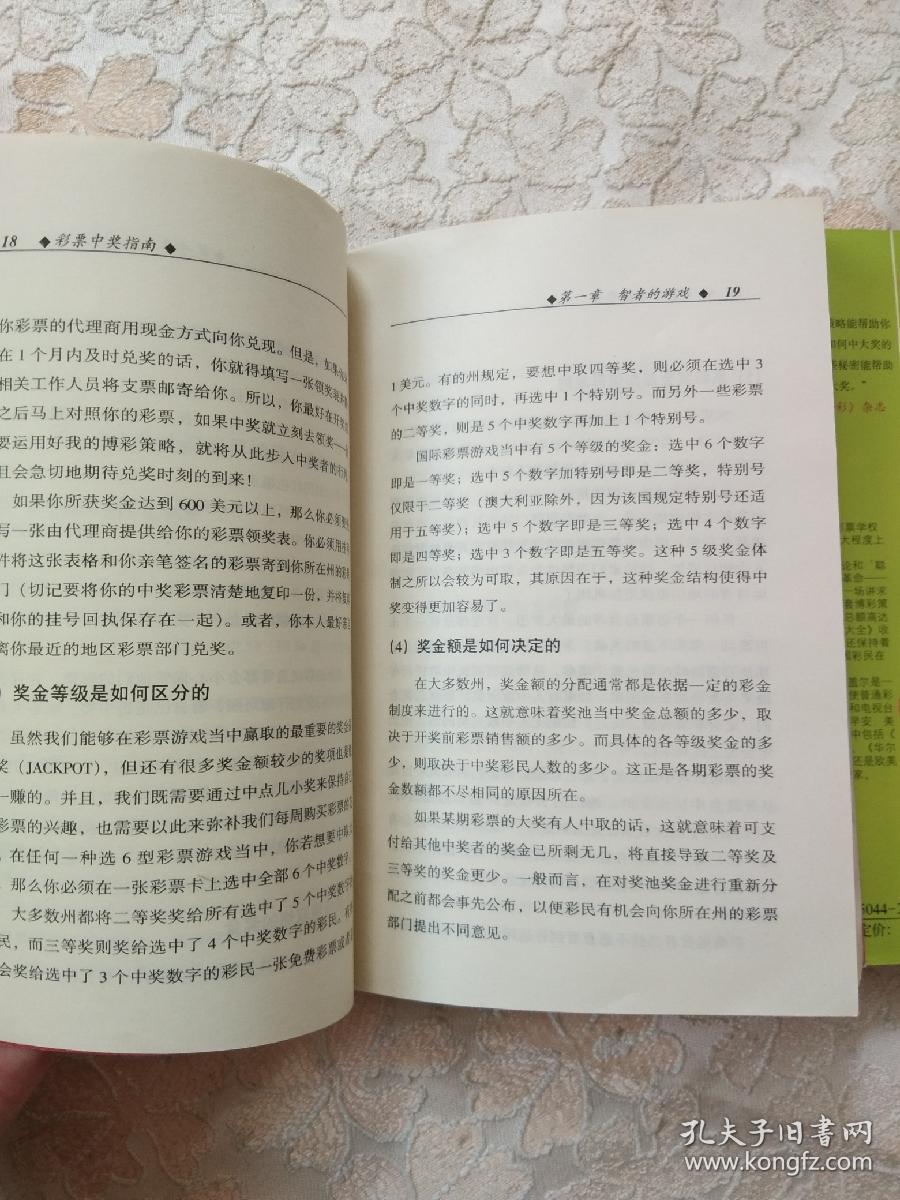 18 ◆彩票中奖指南◆
你彩票的代理商用现金方式向你兑现。但是，如果
在1个月内及时兑奖的话，你就得填写一张领奖表
相关工作人员将支票邮寄给你。所以，你最好在开奖
之后马上对照你的彩票，如果中奖就立刻去领奖——
要运用好我的博彩策略，就将从此步入中奖者的行列
且会急切地期待兑奖时刻的到来！
如果你所获奖金达到600美元以上，那么你必须
写一张由代理商提供给你的彩票领奖表。你必须用
件将这张表格和你亲笔签名的彩票寄到你所在州的
门（切记要将你的中奖彩票清楚地复印一份，并将
和你的挂号回执保存在一起）。或者，你本人最好
离你最近的地区彩票部门兑奖。
）奖金等级是如何区分的
虽然我们能够在彩票游戏当中赢取的最重要的奖金
奖（JACKPOT），但还有很多奖金额较少的奖项也
一赚的。并且，我们既需要通过中点儿小奖来保持自己
彩票的兴趣，也需要以此来弥补我们每周购买彩票的
。在任何一种选6型彩票游戏当中，你若想要中取
，那么你必须在一张彩票卡上选中全部6个中奖数字。
大多数州都将二等奖奖给所有选中了5个中奖数字的
民，而三等奖则奖给选中了4个中奖数字的彩民。
会奖给选中了3个中奖数字的彩民一张免费彩票或者
◆第一章 智者的游戏◆ 19
1美元。有的州规定，要想中取四等奖，则必须在选中3
个中奖数字的同时，再选中1个特别号。而另外一些彩票
的二等奖，则是5个中奖数字再加上1个特别号。
国际彩票游戏当中有5个等级的奖金：选中6个数字
即是一等奖；选中5个数字加特别号即是二等奖，特别号
仅限于二等奖（澳大利亚除外，因为该国规定特别号还适
用于五等奖）；选中5个数字即是三等奖；选中4个数字
即是四等奖；选中3个数字即是五等奖。这种5级奖金体
制之所以会较为可取，其原因在于，这种奖金结构使得中
奖变得更加容易了。
(4) 奖金额是如何决定的
在大多数州，奖金额的分配通常都是依据一定的彩金
制度来进行的。这就意味着奖池当中奖金总额的多少，取
决于开奖前彩票销售额的多少。而具体的各等级奖金的多
少，则取决于中奖彩民人数的多少。这正是各期彩票的奖
金数额都不尽相同的原因所在。
如果某期彩票的大奖有人中取的话，这就意味着可支
付给其他中奖者的奖金已所剩无几，将直接导致二等奖及
三等奖的奖金更少。一般而言，在对奖池奖金进行重新分
配之前都会事先公布，以便彩民有机会向你所在州的彩票
部门提出不同意见。
策略能帮助你
如何中大奖的
些秘密能帮助
大奖。"
彩》杂志
彩票学权
大程度上
论和‘聪
革命——
一场讲末
套博彩策
总额高达
大全》收
还保持着
国彩民在
盖尔是一
使普通彩
和电视台
早安 美
中包括《
《华尔
还是欧美
家。
5044-
定价：
孔夫子旧书网
www.kongfz.com